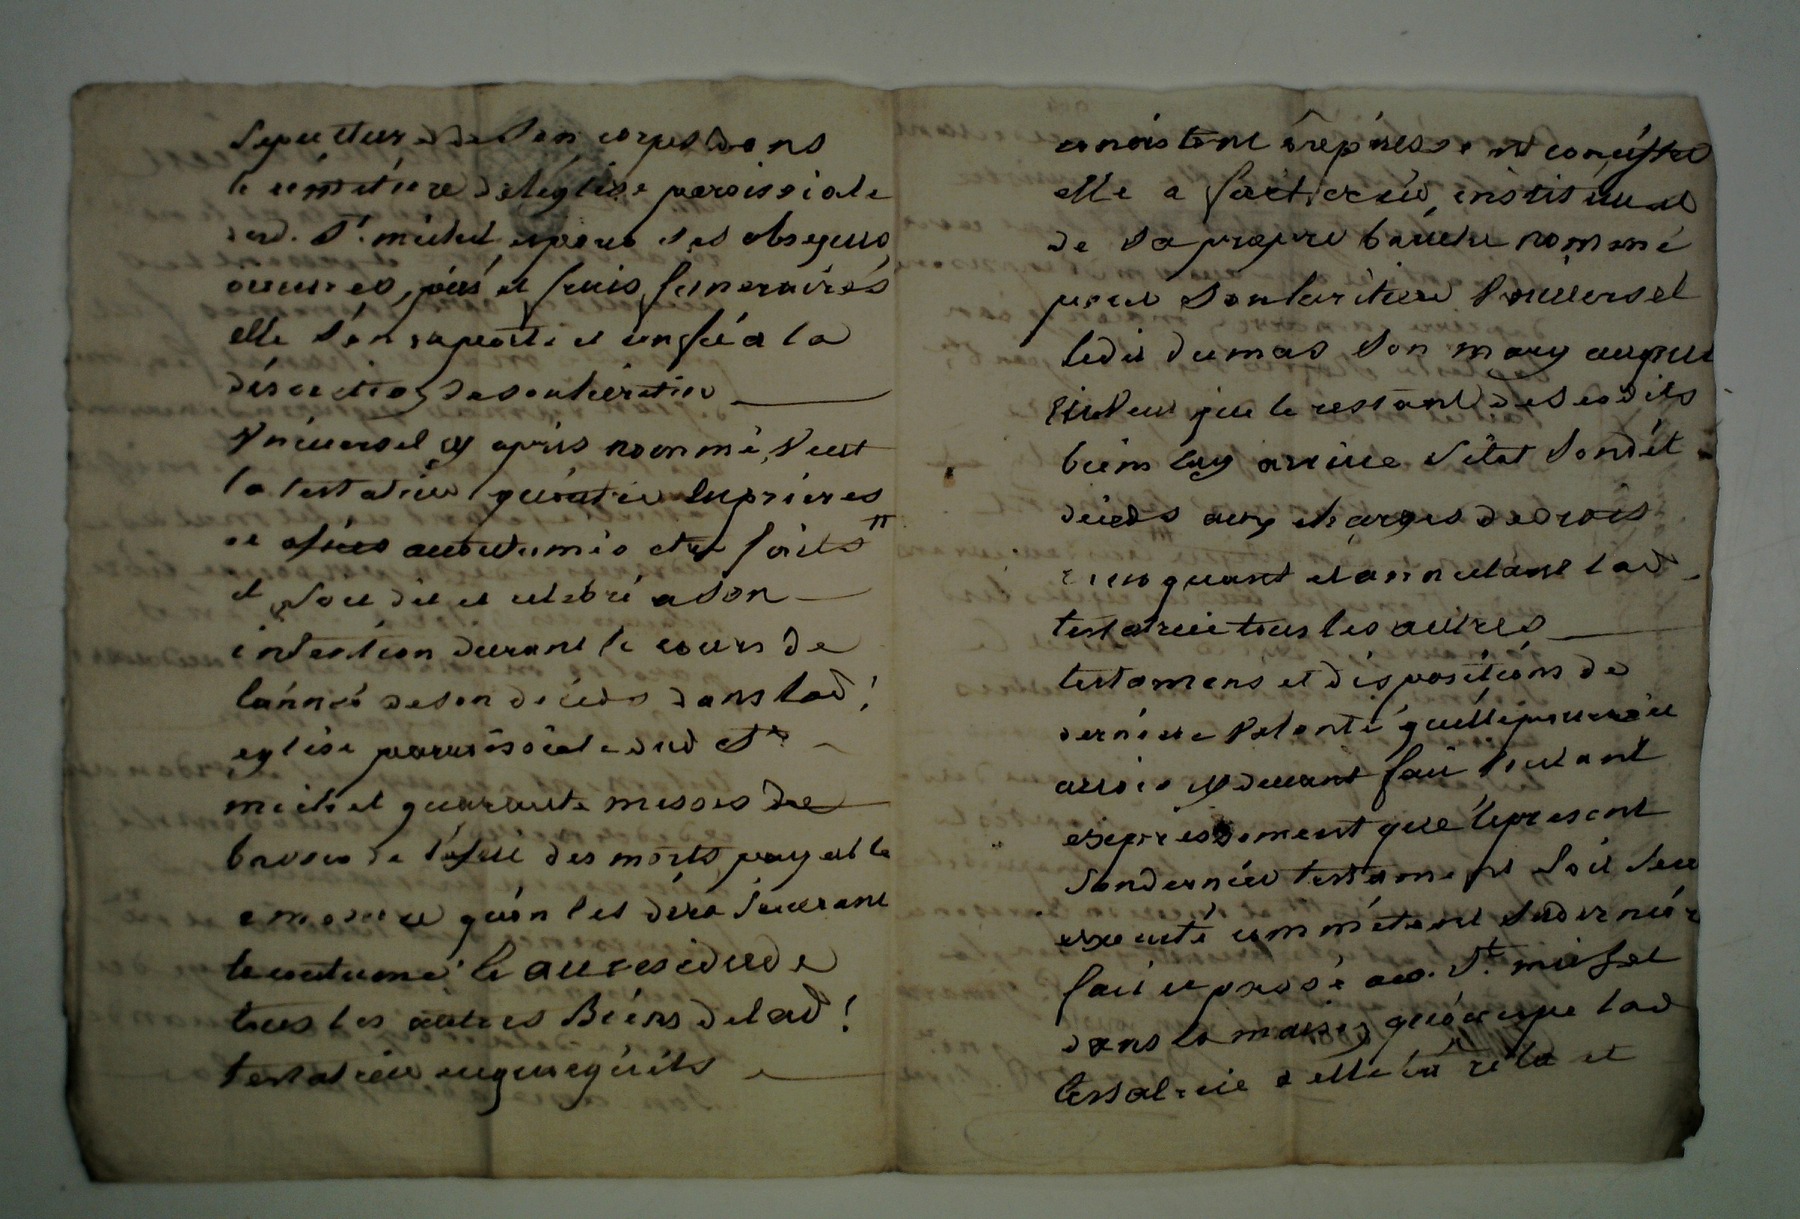 Sepulture de Son corps dans
le cimetiere de léglise paroissiale
dud. St. michel et pour Ses obseques
oeuvres pies et frais funeraires
elle Sen raporte et confie a la
discretion de son heritier
Vniversel cy apres nommé, Veut
la testatrice qu'outre les prieres
et accoutumés etre faits
et Soit dit et celebré a Son
intention durant le cours de
lannée de son deceds dans lad!
eglise paroissiale dud St
michel quarante messes de
de des morts payable
a mesure quon les dira Suivant
la coutume Et au residu de
tous les autres Biens de lad!
testatrice en quoy qu'ils
consistent et puissent consister
elle a fait, creé, institué et
de Sa propre bouche nommé
pour Son heritier Vniversel
ledit dumas Son mary auquel
elle Veut que le restant de Sesdits
biens luy arrive Sitot Sondit
deceds aux charges de droit
revoquant et annulant lad
testatrice tous les autres
testamens et dispositions de
derniere Volonté quelle pourroit
avoir cy devant fait Voulant
expressement que le present
Son dernier testament Soit Seul
executé comme etant Sa derniere
fait et passé aud. St. michel
dans la maison quoccupe lad
testatrice a elle lu et